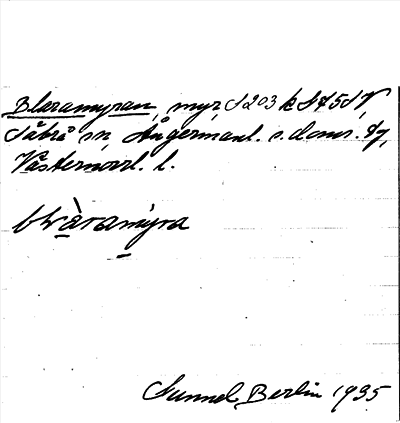 Blaramyran, myr S203 k S7551V,
Säbrå sn, Ångermanl. s. doms. dg,
Västernorrl. l.
blàramýra
Sunnel, Berlin 1935